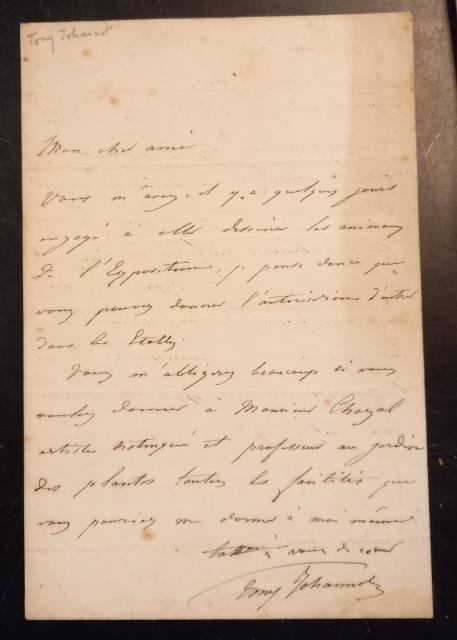 Tony Johannot
Mon cher ami
Vous m'avez, il y a quelques jours
engagé à aller dessiner les animaux
de l'Exposition, je pense donc que
vous pouvez donner l'autorisation d'entrer
dans les Etables.
Vous m'obligerez beaucoup si vous
voulez donner à Monsieur Chazal
artiste distingué et professeur au jardin
des plantes toutes les facilités que
vous pourriez me donner à moi même.
à vous de cœur
Tony Johannot